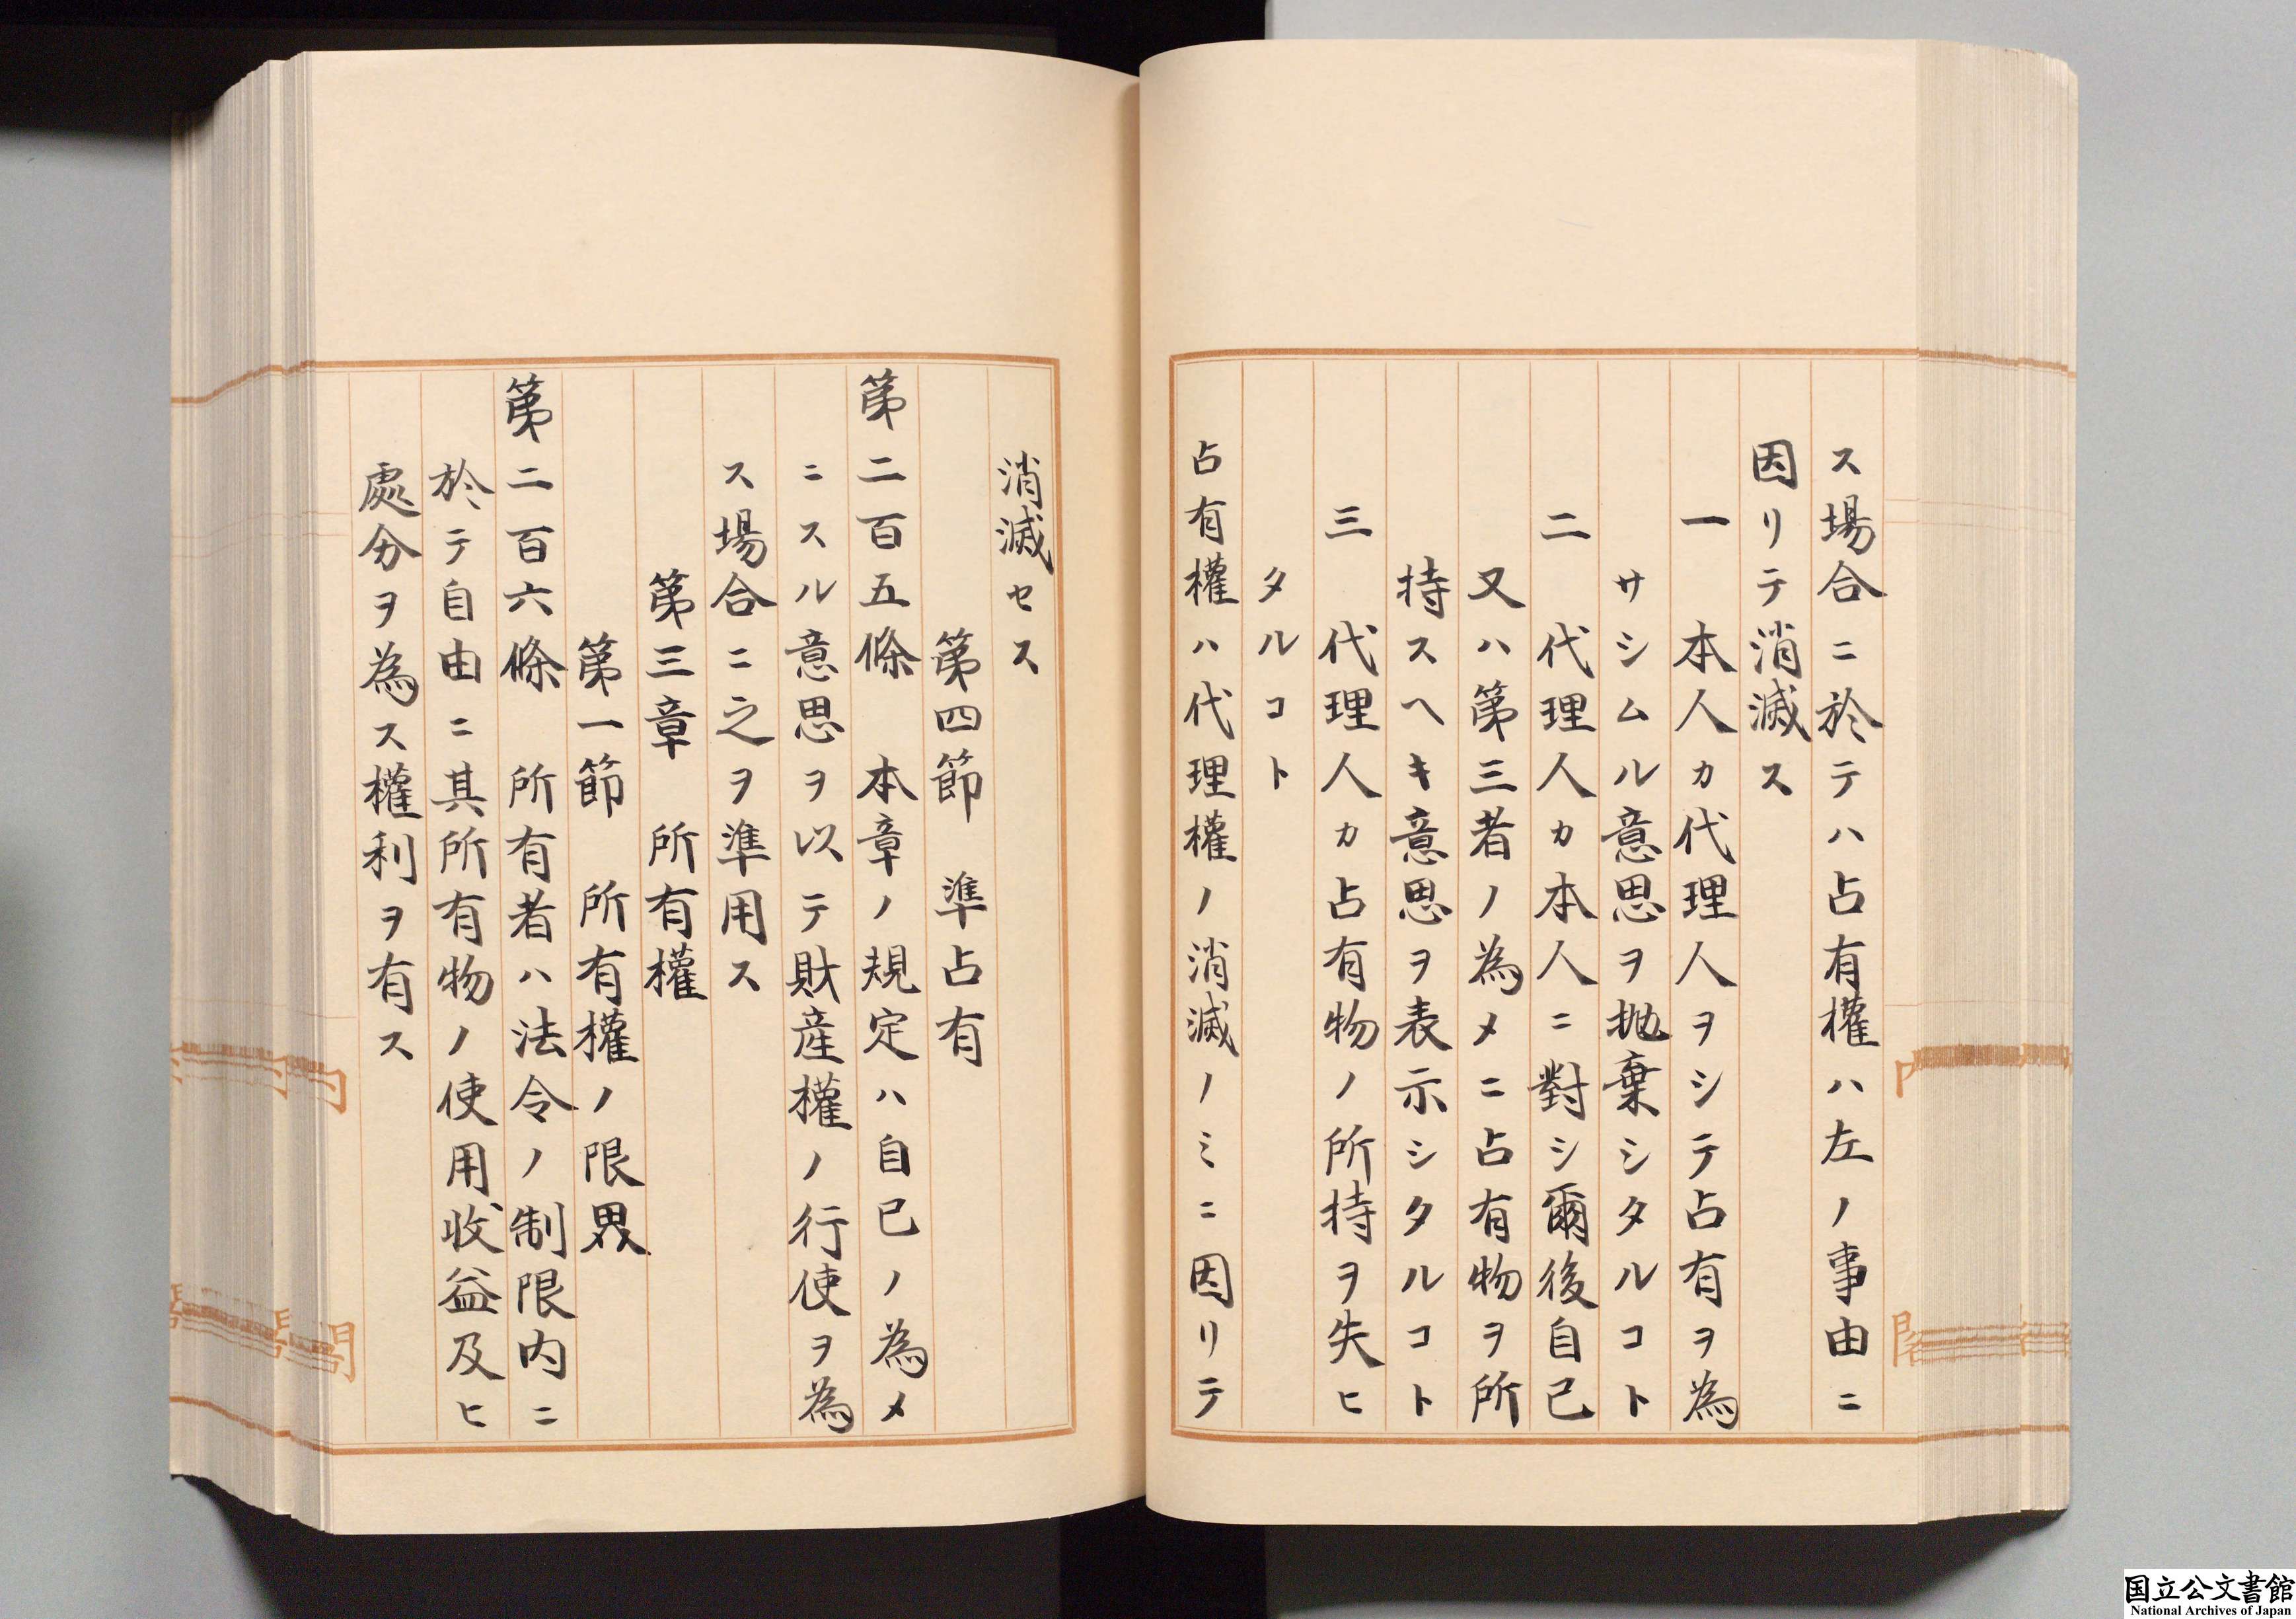 ス場合ニ於テハ占有權ハ左ノ事由ニ
因リテ消滅ス
一 本人カ代理人ヲシテ占有ヲ為
サシムル意思ヲ抛棄シタルコト
二 代理人カ本人ニ對シ爾後自己
又ハ第三者ノ為メニ占有物ヲ所
持スヘキ意思ヲ表示シタルコト
三 代理人カ占有物ノ所持ヲ失ヒ
タルコト
占有權ハ代理權ノ消滅ノミニ因リテ
消滅セス
第四節 準占有
第二百五條 本章ノ規定ハ自己ノ為メ
ニスル意思ヲ以テ財産權ノ行使ヲ為
ス場合ニ之ヲ準用ス
第三章 所有權
第一節 所有權ノ限界
第二百六條 所有者ハ法令ノ制限内ニ
於テ自由ニ其所有物ノ使用收益及ヒ
處分ヲ為ス權利ヲ有ス
国立公文書館
National Archives of Japan